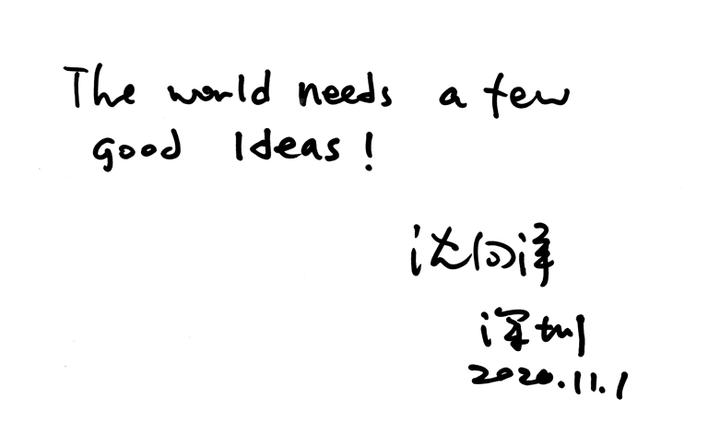 The world needs a few
good Ideas!
沈向洋
深圳
2020.11.1